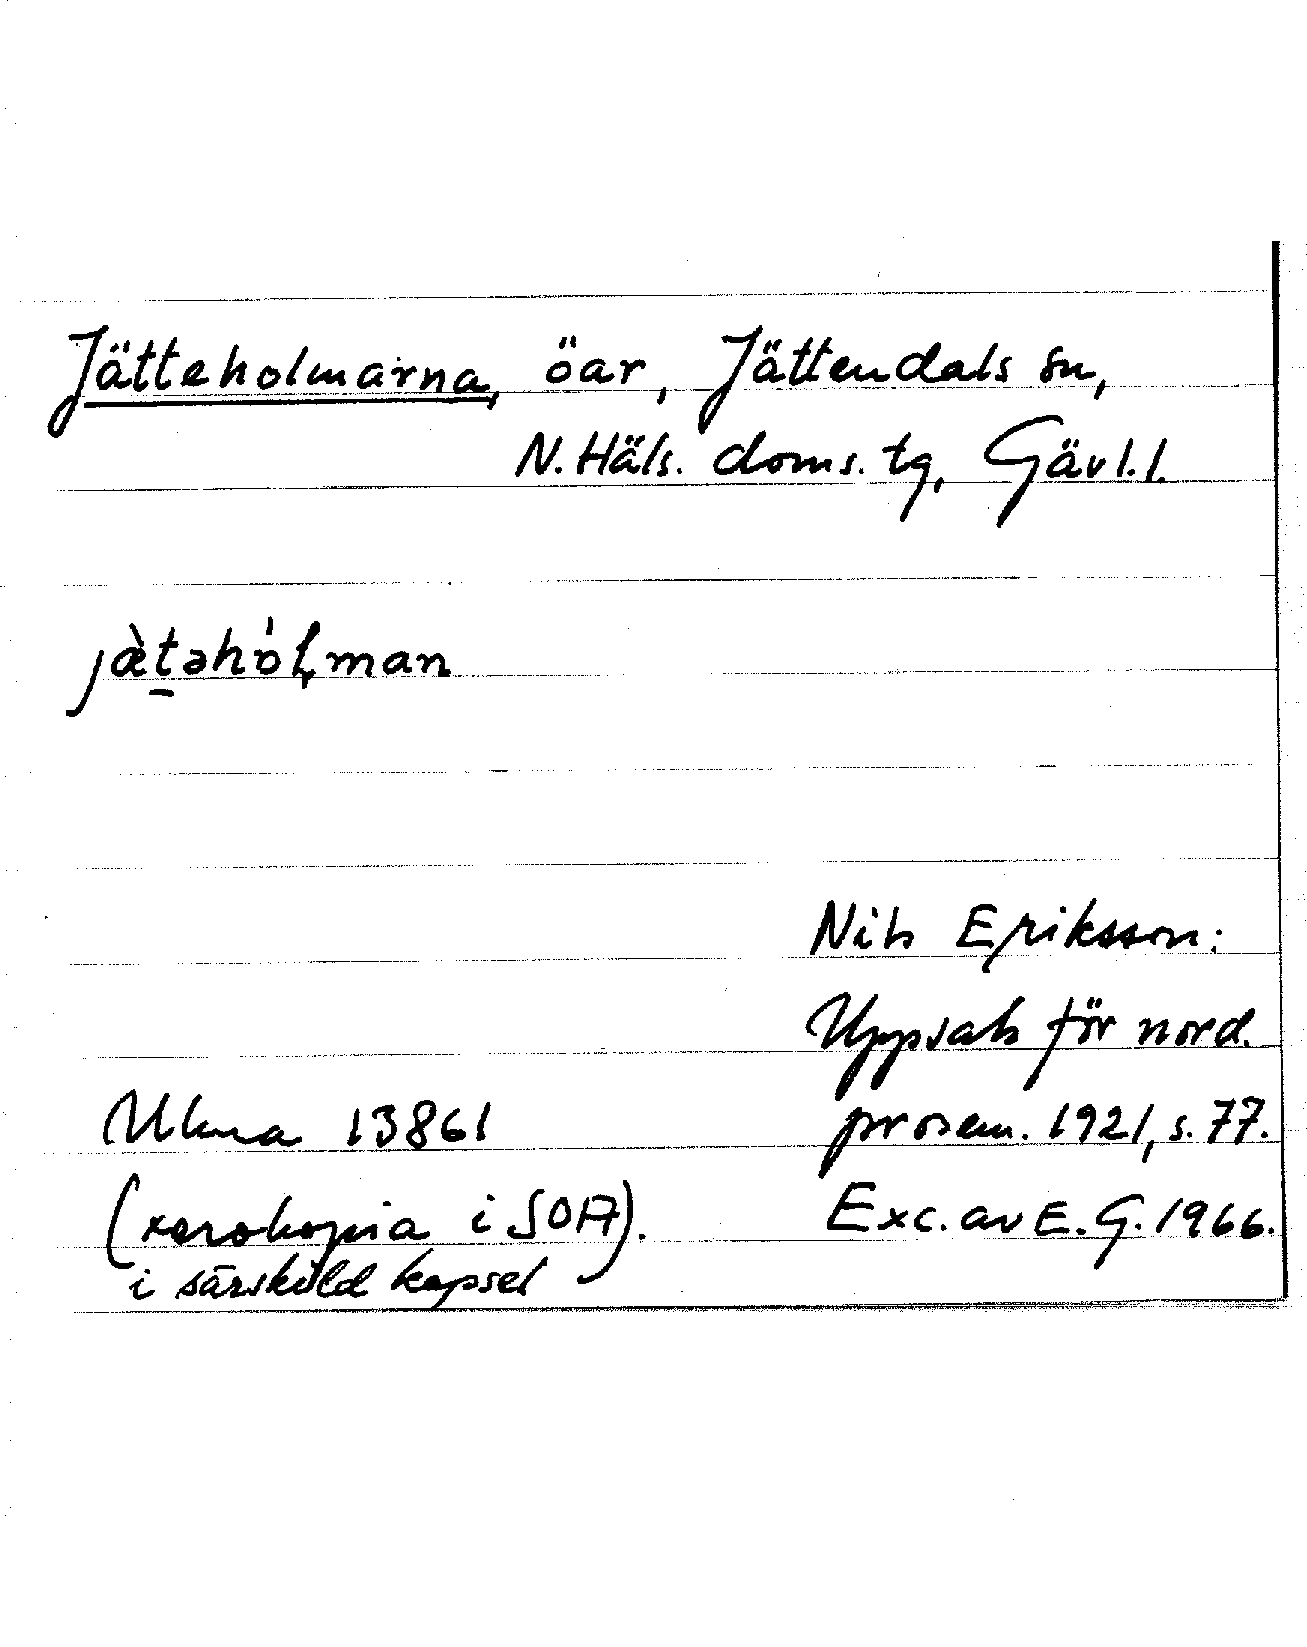 Jätteholmarna, öar, Jättendals sn,
N. Häls. doms. tg, Gävl. l.
jæ̀t̠əhò́ɭman
Nils Eriksson:
Uppsats för nord.
prosem. 1921, s. 77.
Ulma 13861
(xerokopia i SOA).
i särskild kapsel
Exc. av E. G. 1966.